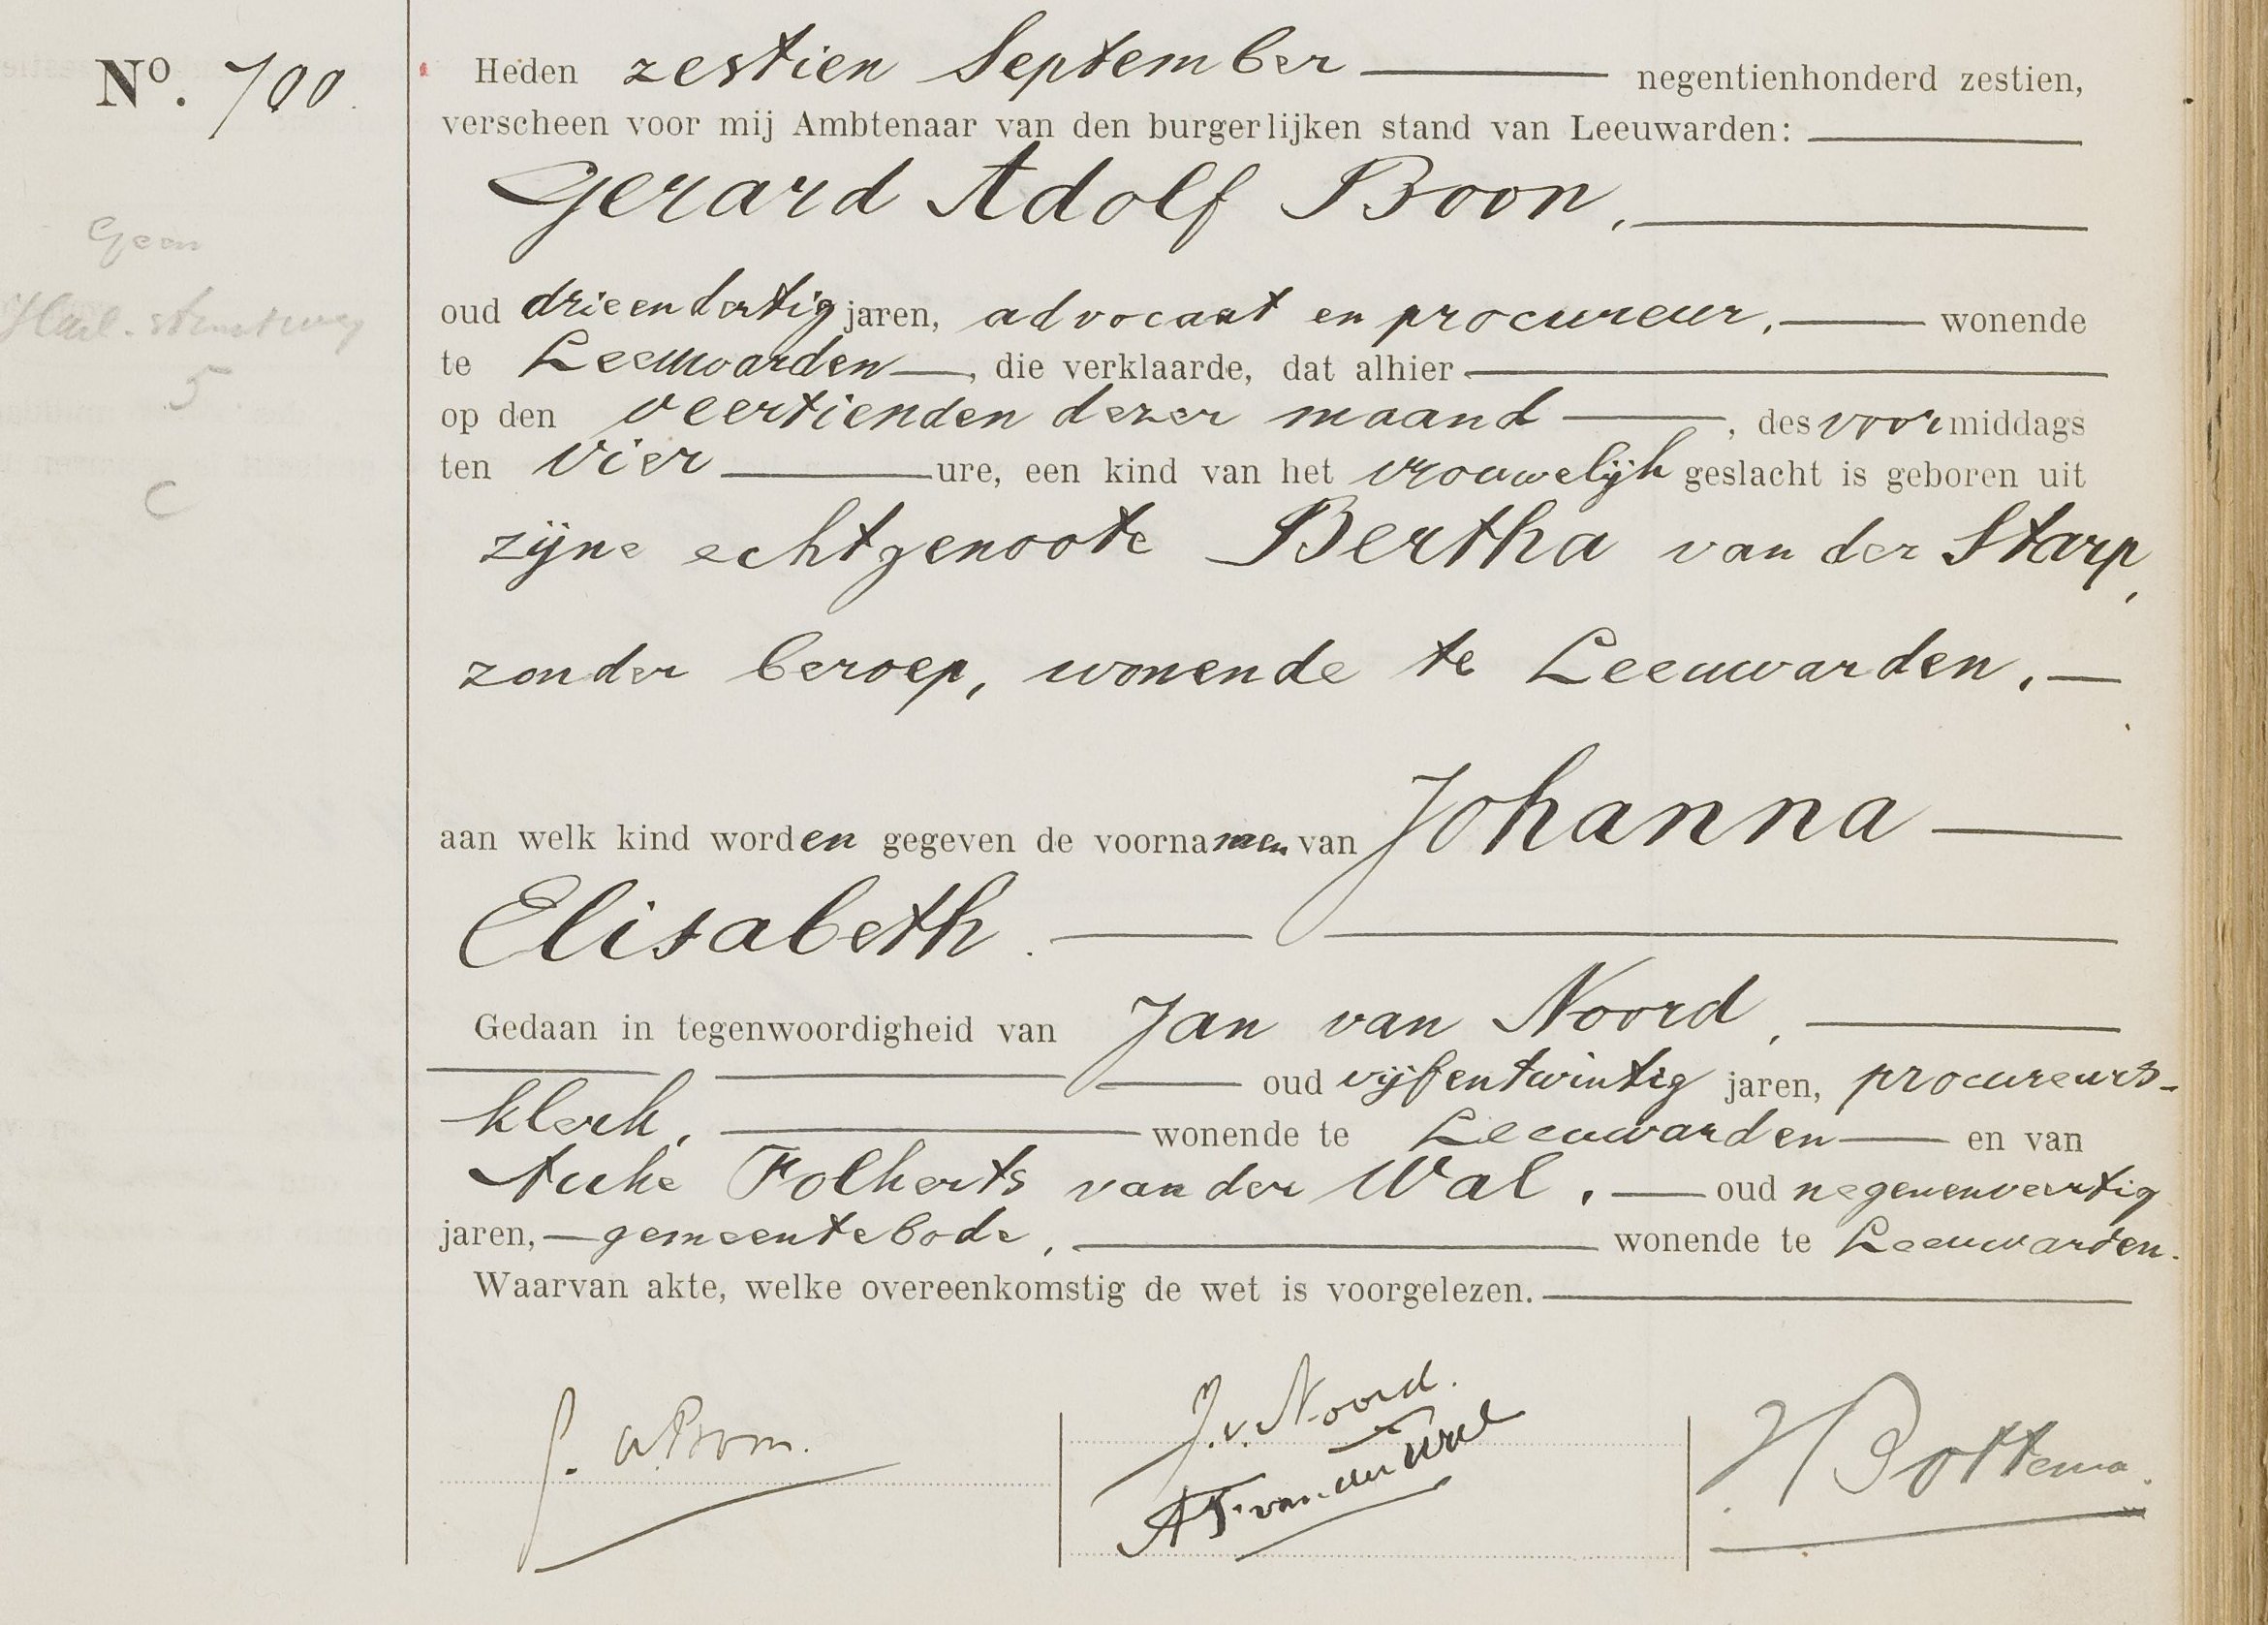 Nº. 700.
Geen
Harl. straatweg
5
C
Heden zestien September negentienhonderd zestien,
verscheen voor mij Ambtenaar van den burgerlijken stand van Leeuwarden:
Gerard Adolf Boon,
oud drieendertig jaren, advocaat en procureur, wonende
te Leeuwarden, die verklaarde, dat alhier
op den veertienden dezer maand, des voormiddags
ten vier ure, een kind van het vrouwelijk geslacht is geboren uit
zijne echtgenoote Bertha van der Starp,
zonder beroep, wonende te Leeuwarden,
aan welk kind worden gegeven de voornamen van Johanna
Elisabeth.
Gedaan in tegenwoordigheid van Jan van Noord,
oud vijfentwintig jaren, procureurs-
klerk, wonende te Leeuwarden en van
Auke Folkerts van der Wal, oud negenenveertig
jaren, gemeentebode, wonende te Leeuwarden.
Waarvan akte, welke overeenkomstig de wet is voorgelezen.
G. A. Boon.
J. v. Noord.
A F. van der Wal
H Bottema.